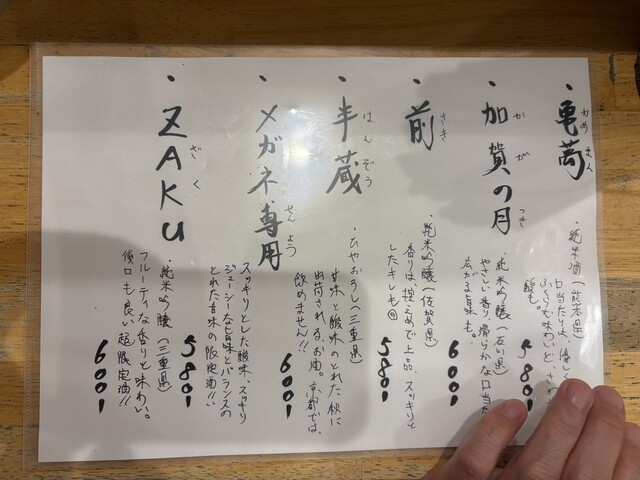 ・亀萬
かめまん
・純米酒(熊本県)
口当たりよく、優しい
ふくらむ味わいと
580円
・加賀の月
かがつき
・純米吟醸(石川県)
やさしい香り滑らかな口当た
広がる旨味も。
600円
・前
さき
・純米吟醸(佐賀県)
香りは控えめで上品、スッキリと
したキレも◎
580円
・半蔵
はんぞう
・ひやおろし(三重県)
甘味と酸味のとれた秋に
出荷される、お酒。京都では、
飲めません!!
600円
・メガネ専用
せんよう
スッキリとした酸味、スッキリ
ジューシーな旨味とバランスの
とれた甘味の限定酒!!
580円
・ZAKU
ざく
・純米吟醸(三重県)
フルーティな香りと味わい。
後口も良い超限定酒!!
600円